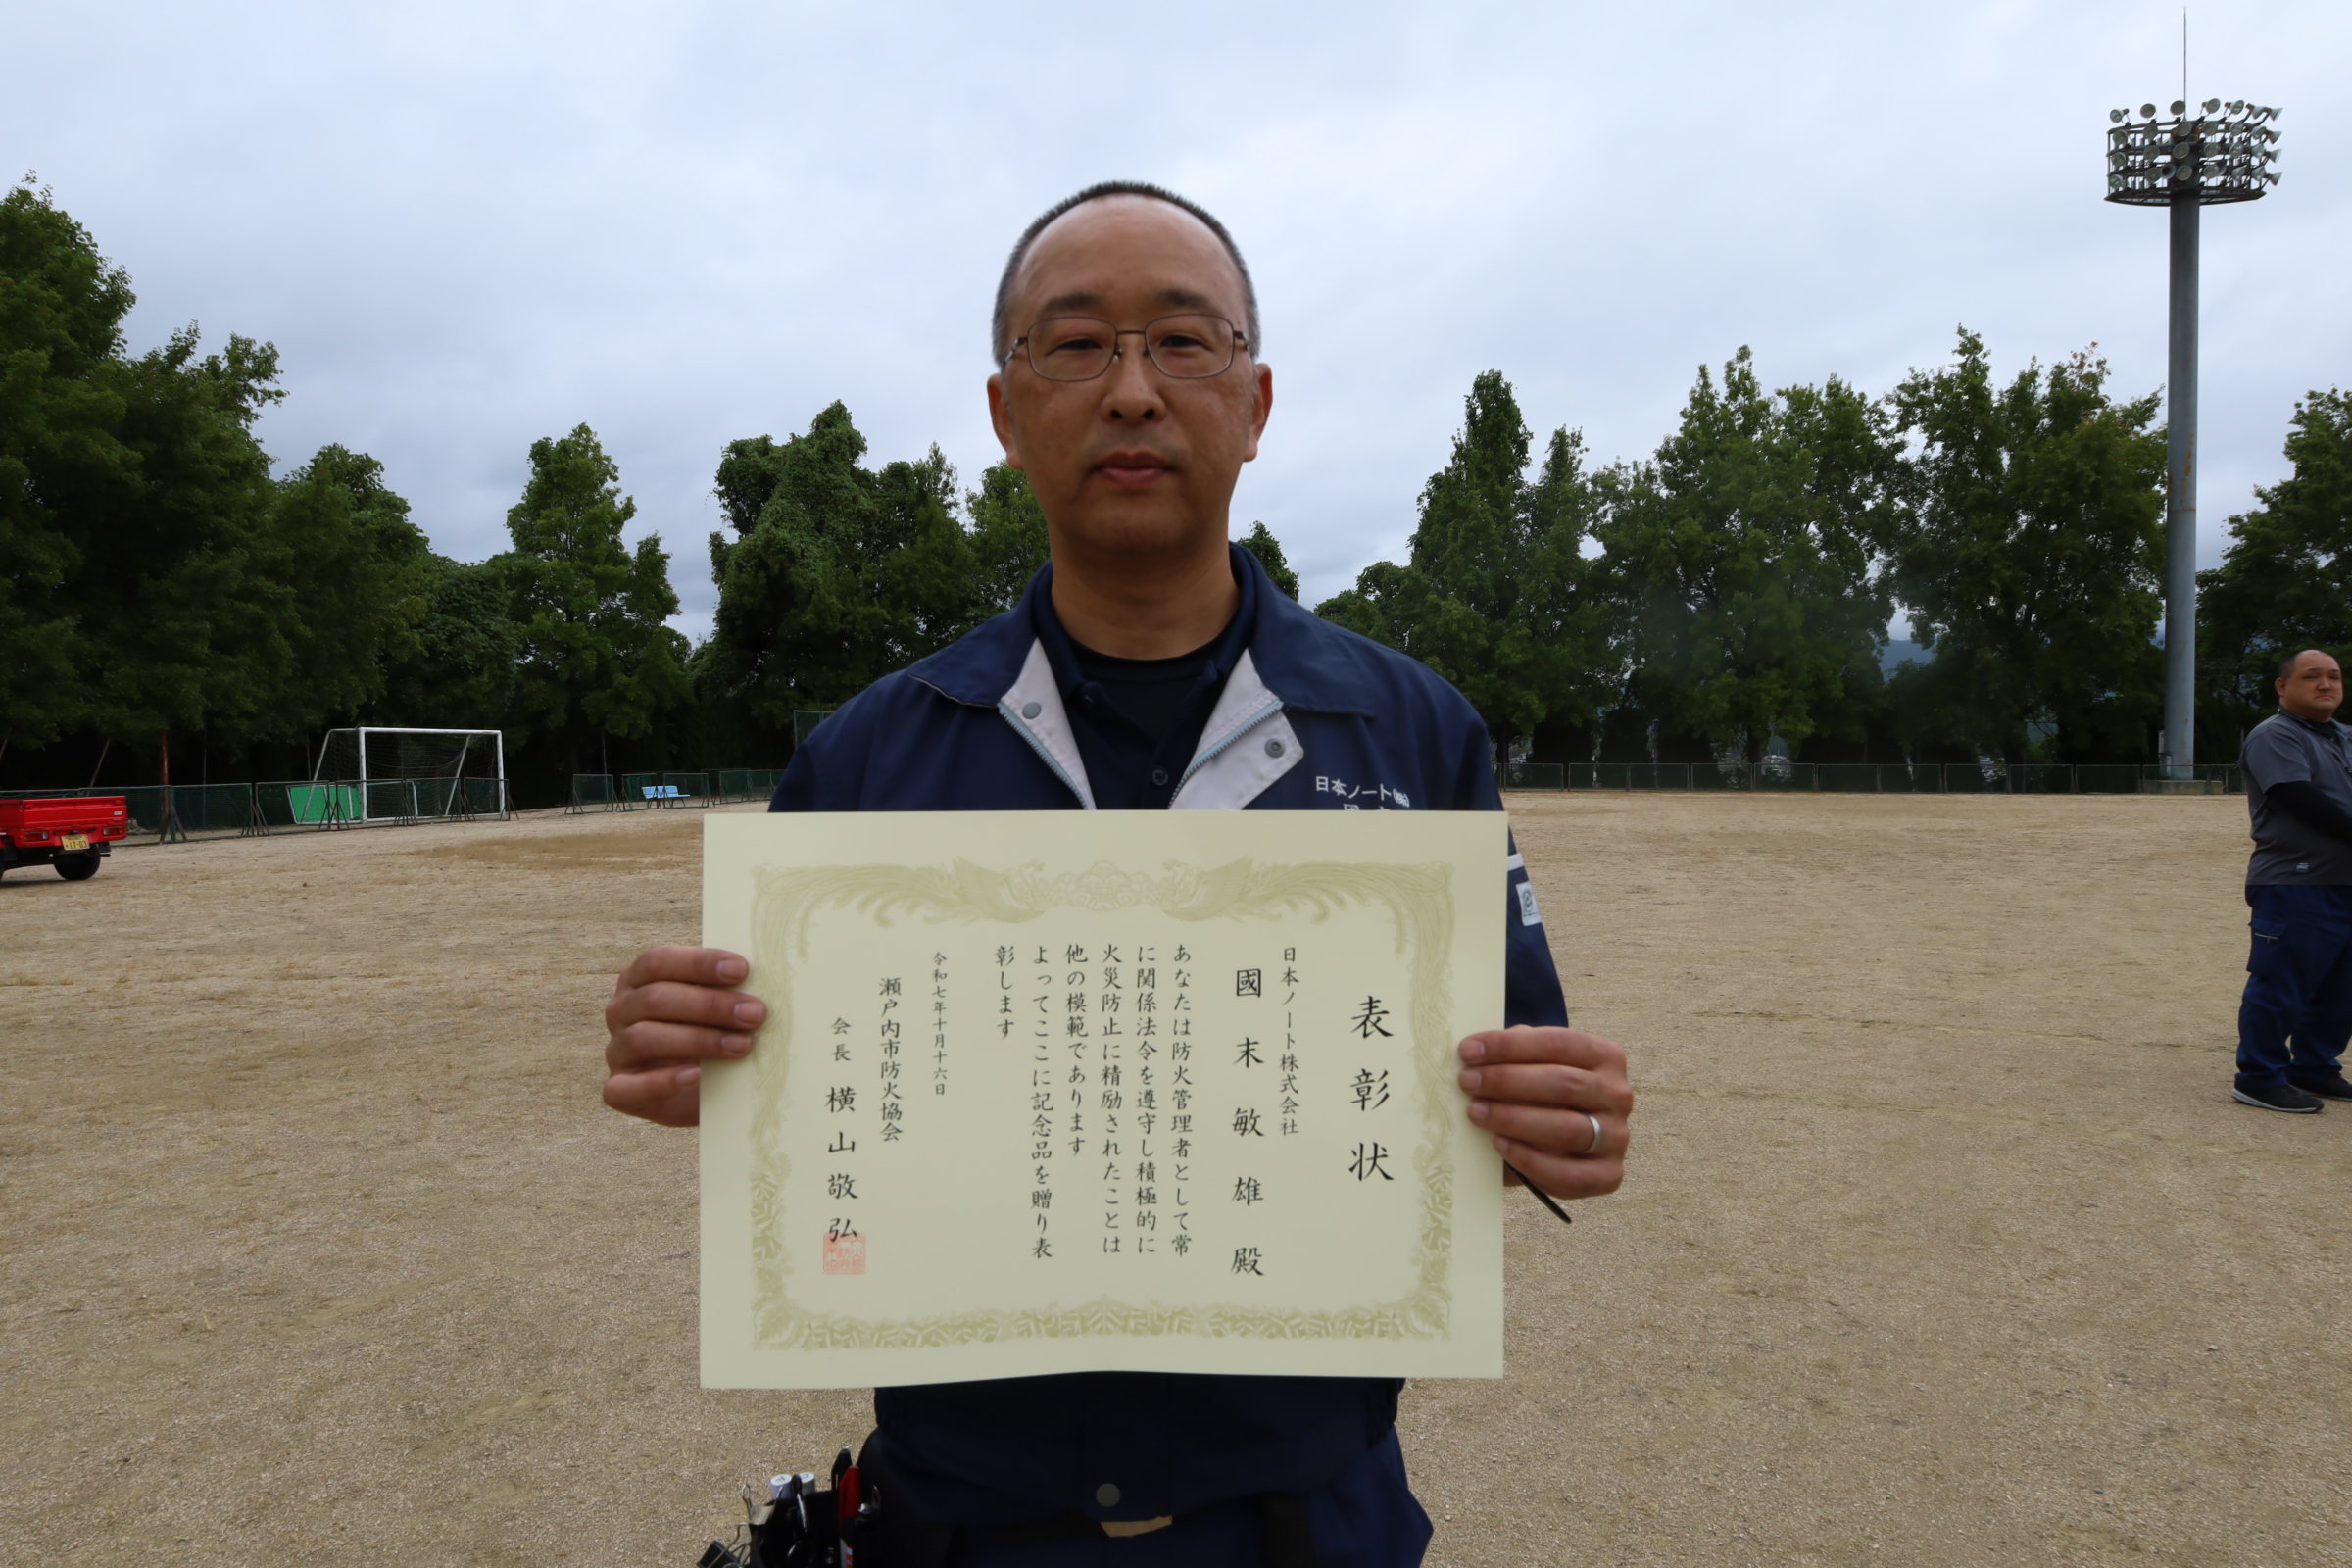 日本ノート(株)
表彰状
日本ノート株式会社
國末敏雄殿
あなたは防火管理者として常
に関係法令を遵守し積極的に
火災防止に精励されたことは
他の模範であります
よってここに記念品を贈り表
彰します
令和七年十月十六日
瀬戸内市防火協会
会長 横山敬弘
17-03